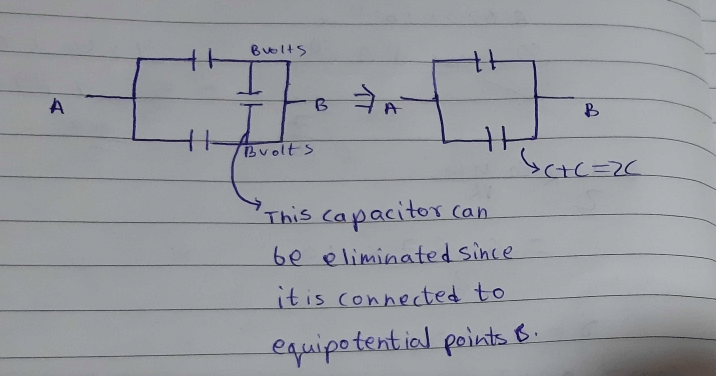 Bvolts
A
B
⇒
A
B
Bvolts
C+C=2C
This capacitor can
be eliminated since
it is connected to
equipotential points B.